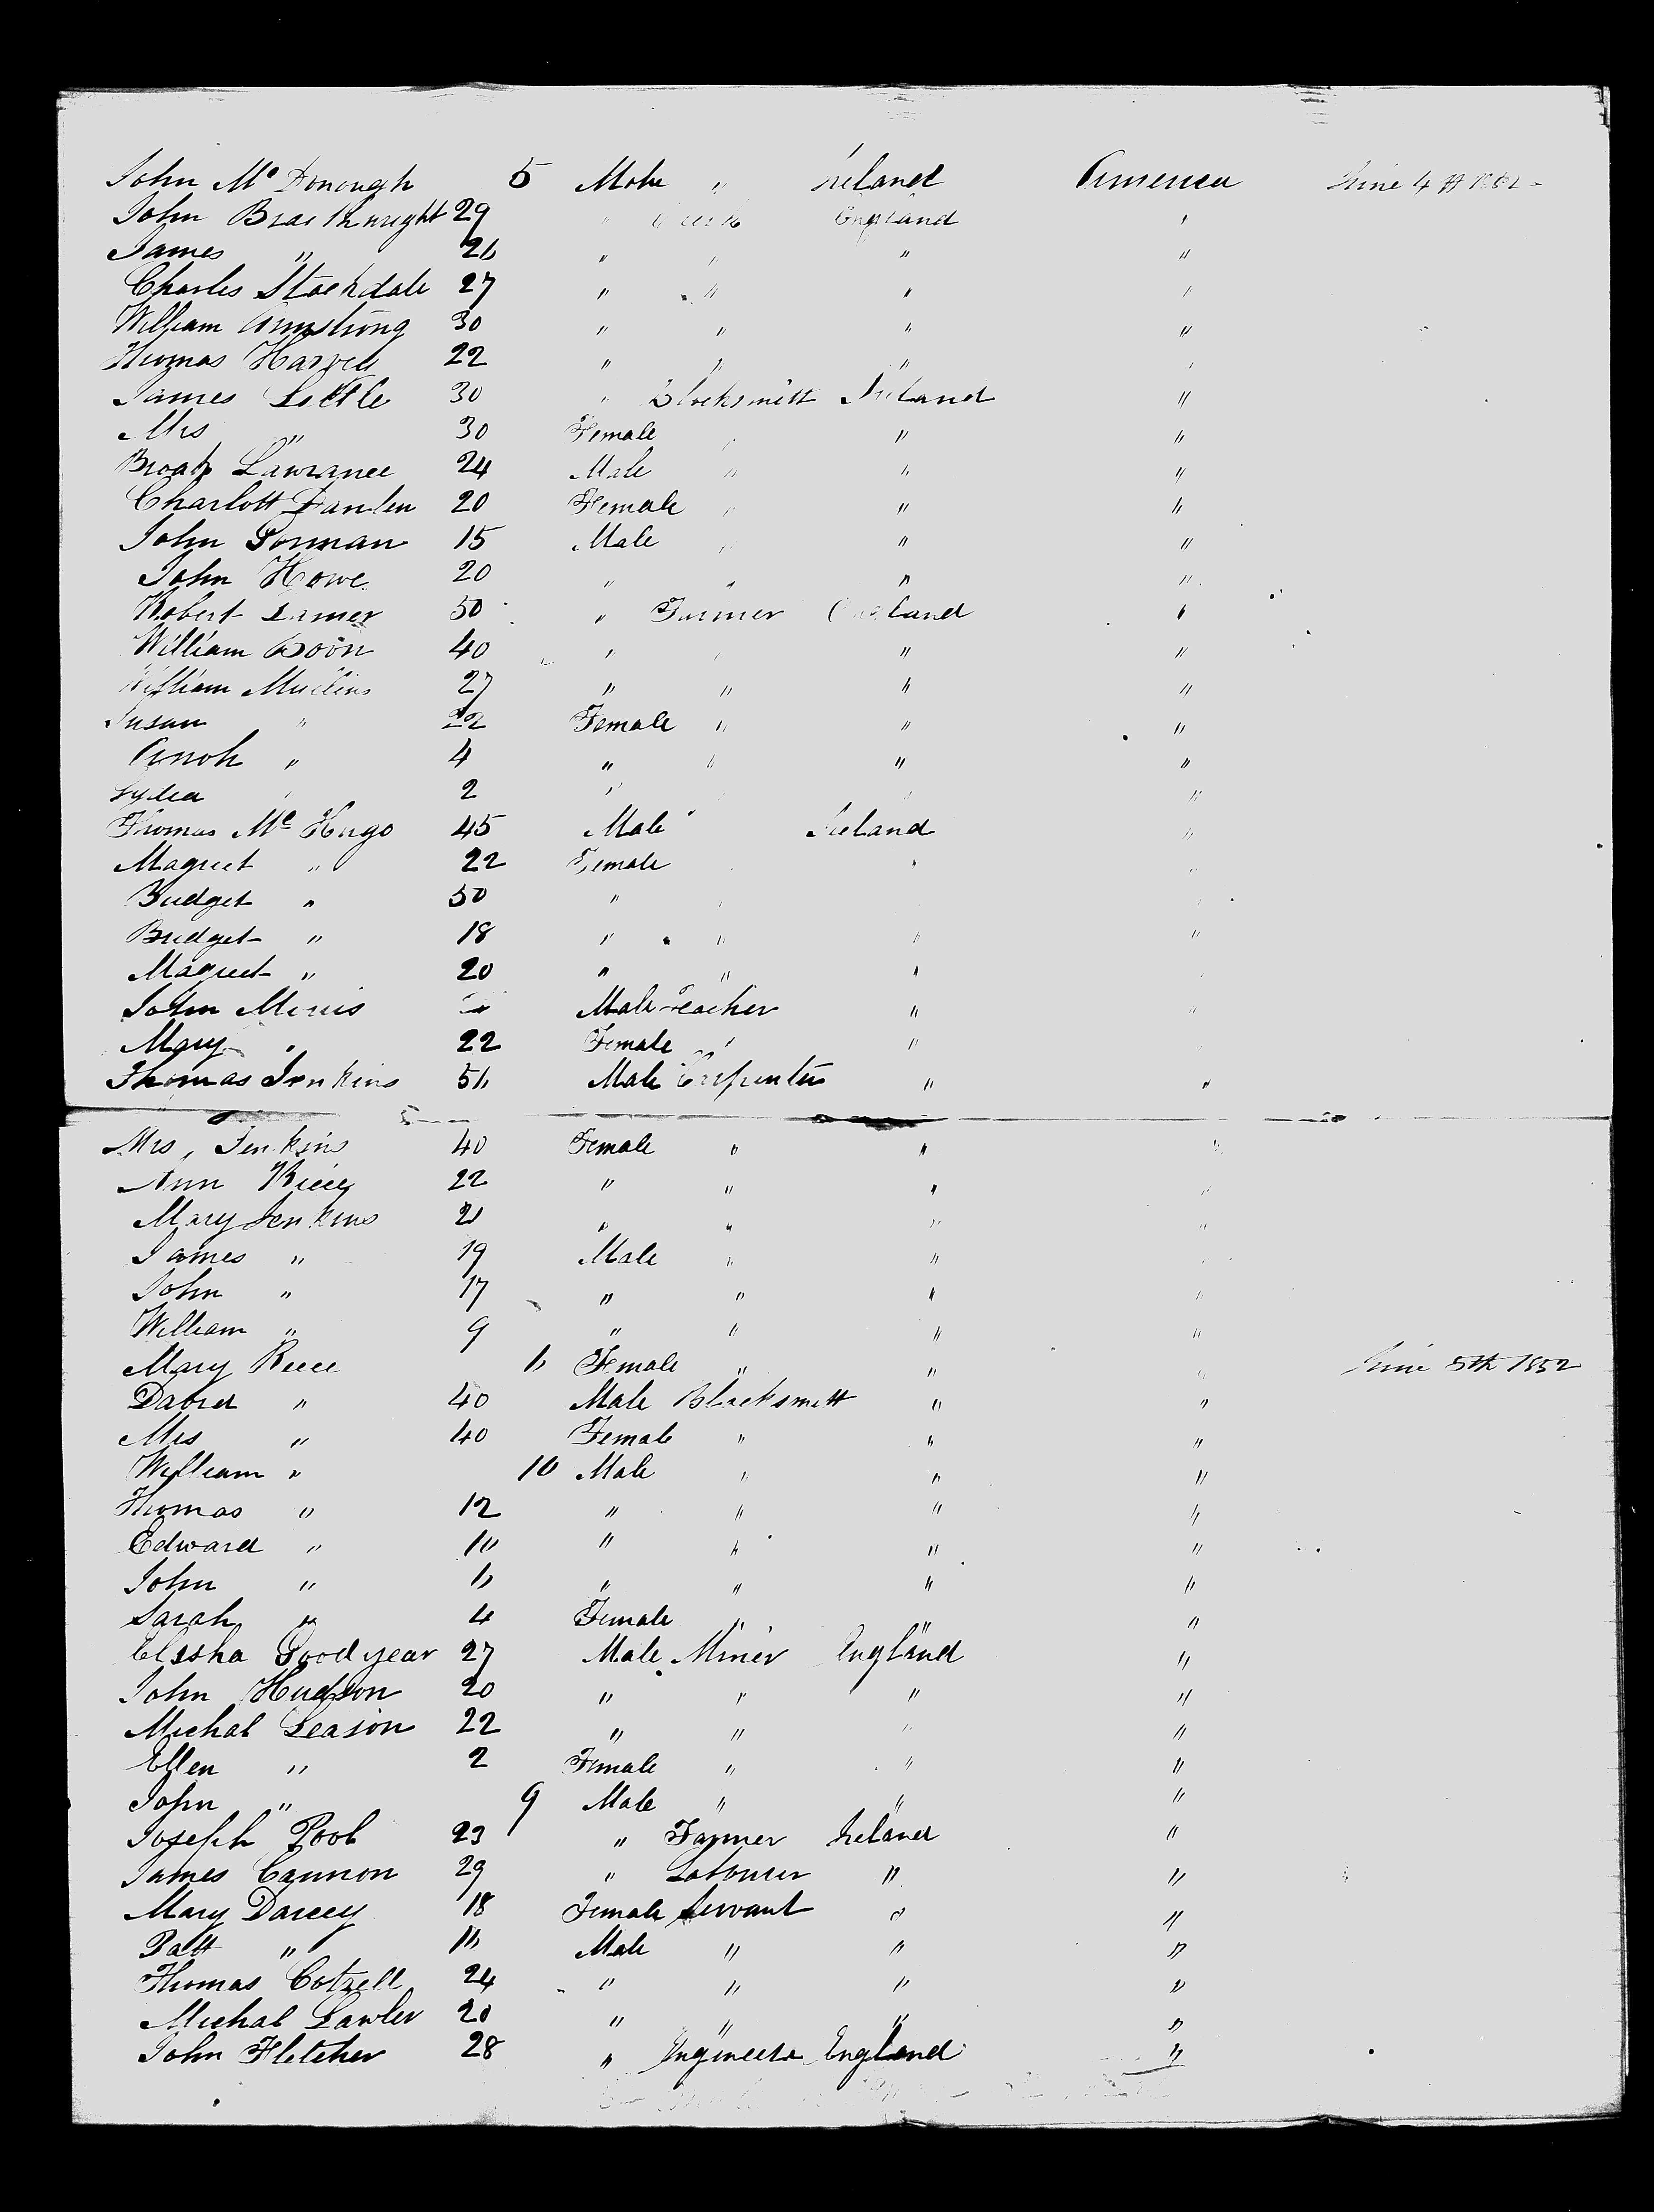 John Mc Donough 5 Male " Ireland America June 4th 1852
John Braithwright 29 " Clerk England "
James " 26 " " " "
Charles Stockdale 27 " " " "
William Armstrong 30 " " " "
Thomas Harvey 22 " " " "
James Little 30 " Blacksmith Ireland "
Mrs " 30 Female " " "
Lawrance 24 Male " " "
Charlott 20 Female " " "
John Gorman 15 Male " " "
John Howe 20 " " " "
Robert 50 " Farmer England "
William Boon 40 " " " "
William Mullins 27 " " " "
Susan " 22 Female " " "
" 4 " " " "
Lydia " 2 " " "
Thomas Mc Hugo 45 Male " Ireland "
Magret " 22 Female " "
Bridget " 50 " " "
Bridget " 18 " " " "
Magret " 20 " " " "
John Male Teacher " "
Mary " 22 Female " " "
Thomas Jenkins 56 Male Carpenter " "
Mrs, Jenkins 40 Female " " "
Ann 22 " " " "
Mary Jenkins 21 " " " "
James " 19 Male " " "
John " 17 " " " "
William " 9 " " " "
Mary Reece 6 Female " " " June 5th 1852
David " 40 Male Blacksmith " "
Mrs " 40 Female " " "
William " 10 Male " " "
Thomas " 12 " " " "
Edward " 10 " " " "
John " 6 " " " "
Sarah " 4 Female " " "
Elisha Goodyear 27 Male Miner England "
John Hudson 20 " " " "
Michal Leason 22 " " " "
Ellen " 2 Female " " "
John " 9 Male " " "
Joseph Pool 23 " Farmer Ireland "
James Cannon 29 " Labourer " "
Mary Darcey 18 Female Servant " "
Patt " 16 Male " " "
Thomas Cotzell 24 " " " "
Michal Lawler 20 " " " "
John Fletcher 28 " Engineer England "